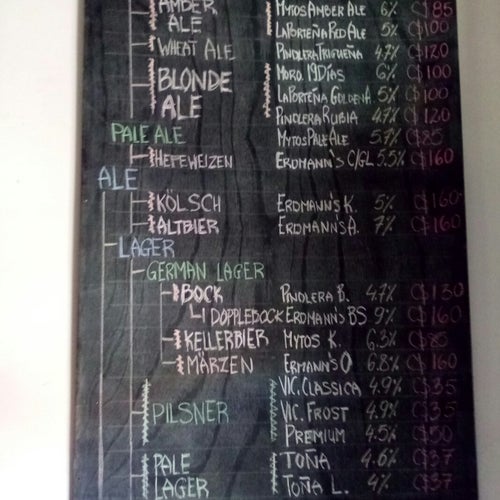 AMBER MYTOS AMBER ALE 6% C$85
ALE LAPORTEÑA RED ALE 5% C$100
WHEAT ALE PINOLERA TRIGUEÑA 4.7% C$120
BLONDE MORO. 19 DÍAS 6% C$100
ALE LAPORTEÑA GOLDEN A. 5% C$100
PINOLERA RUBIA 4.7% C$120
PALE ALE MYTOS PALE ALE 5.7% C$85
HEFEWEIZEN ERDMANN'S C/GL 5.5% C$160
ALE
KÖLSCH ERDMANN'S K. 5% C$160
ALTBIER ERDMANN'S A. 7% C$160
LAGER
GERMAN LAGER
BOCK PINOLERA B. 4.7% C$130
DOPPLEBOCK ERDMANN'S BS 9% C$160
KELLERBIER MYTOS K. 6.3% C$85
MÄRZEN ERMANN'S O 6.8% C$160
VIC. CLASSICA 4.9% C$35
PILSNER VIC. FROST 4.9% C$35
PREMIUM 4.5% C$50
PALE TOÑA 4.6% C$37
LAGER TOÑA L. 4% C$37